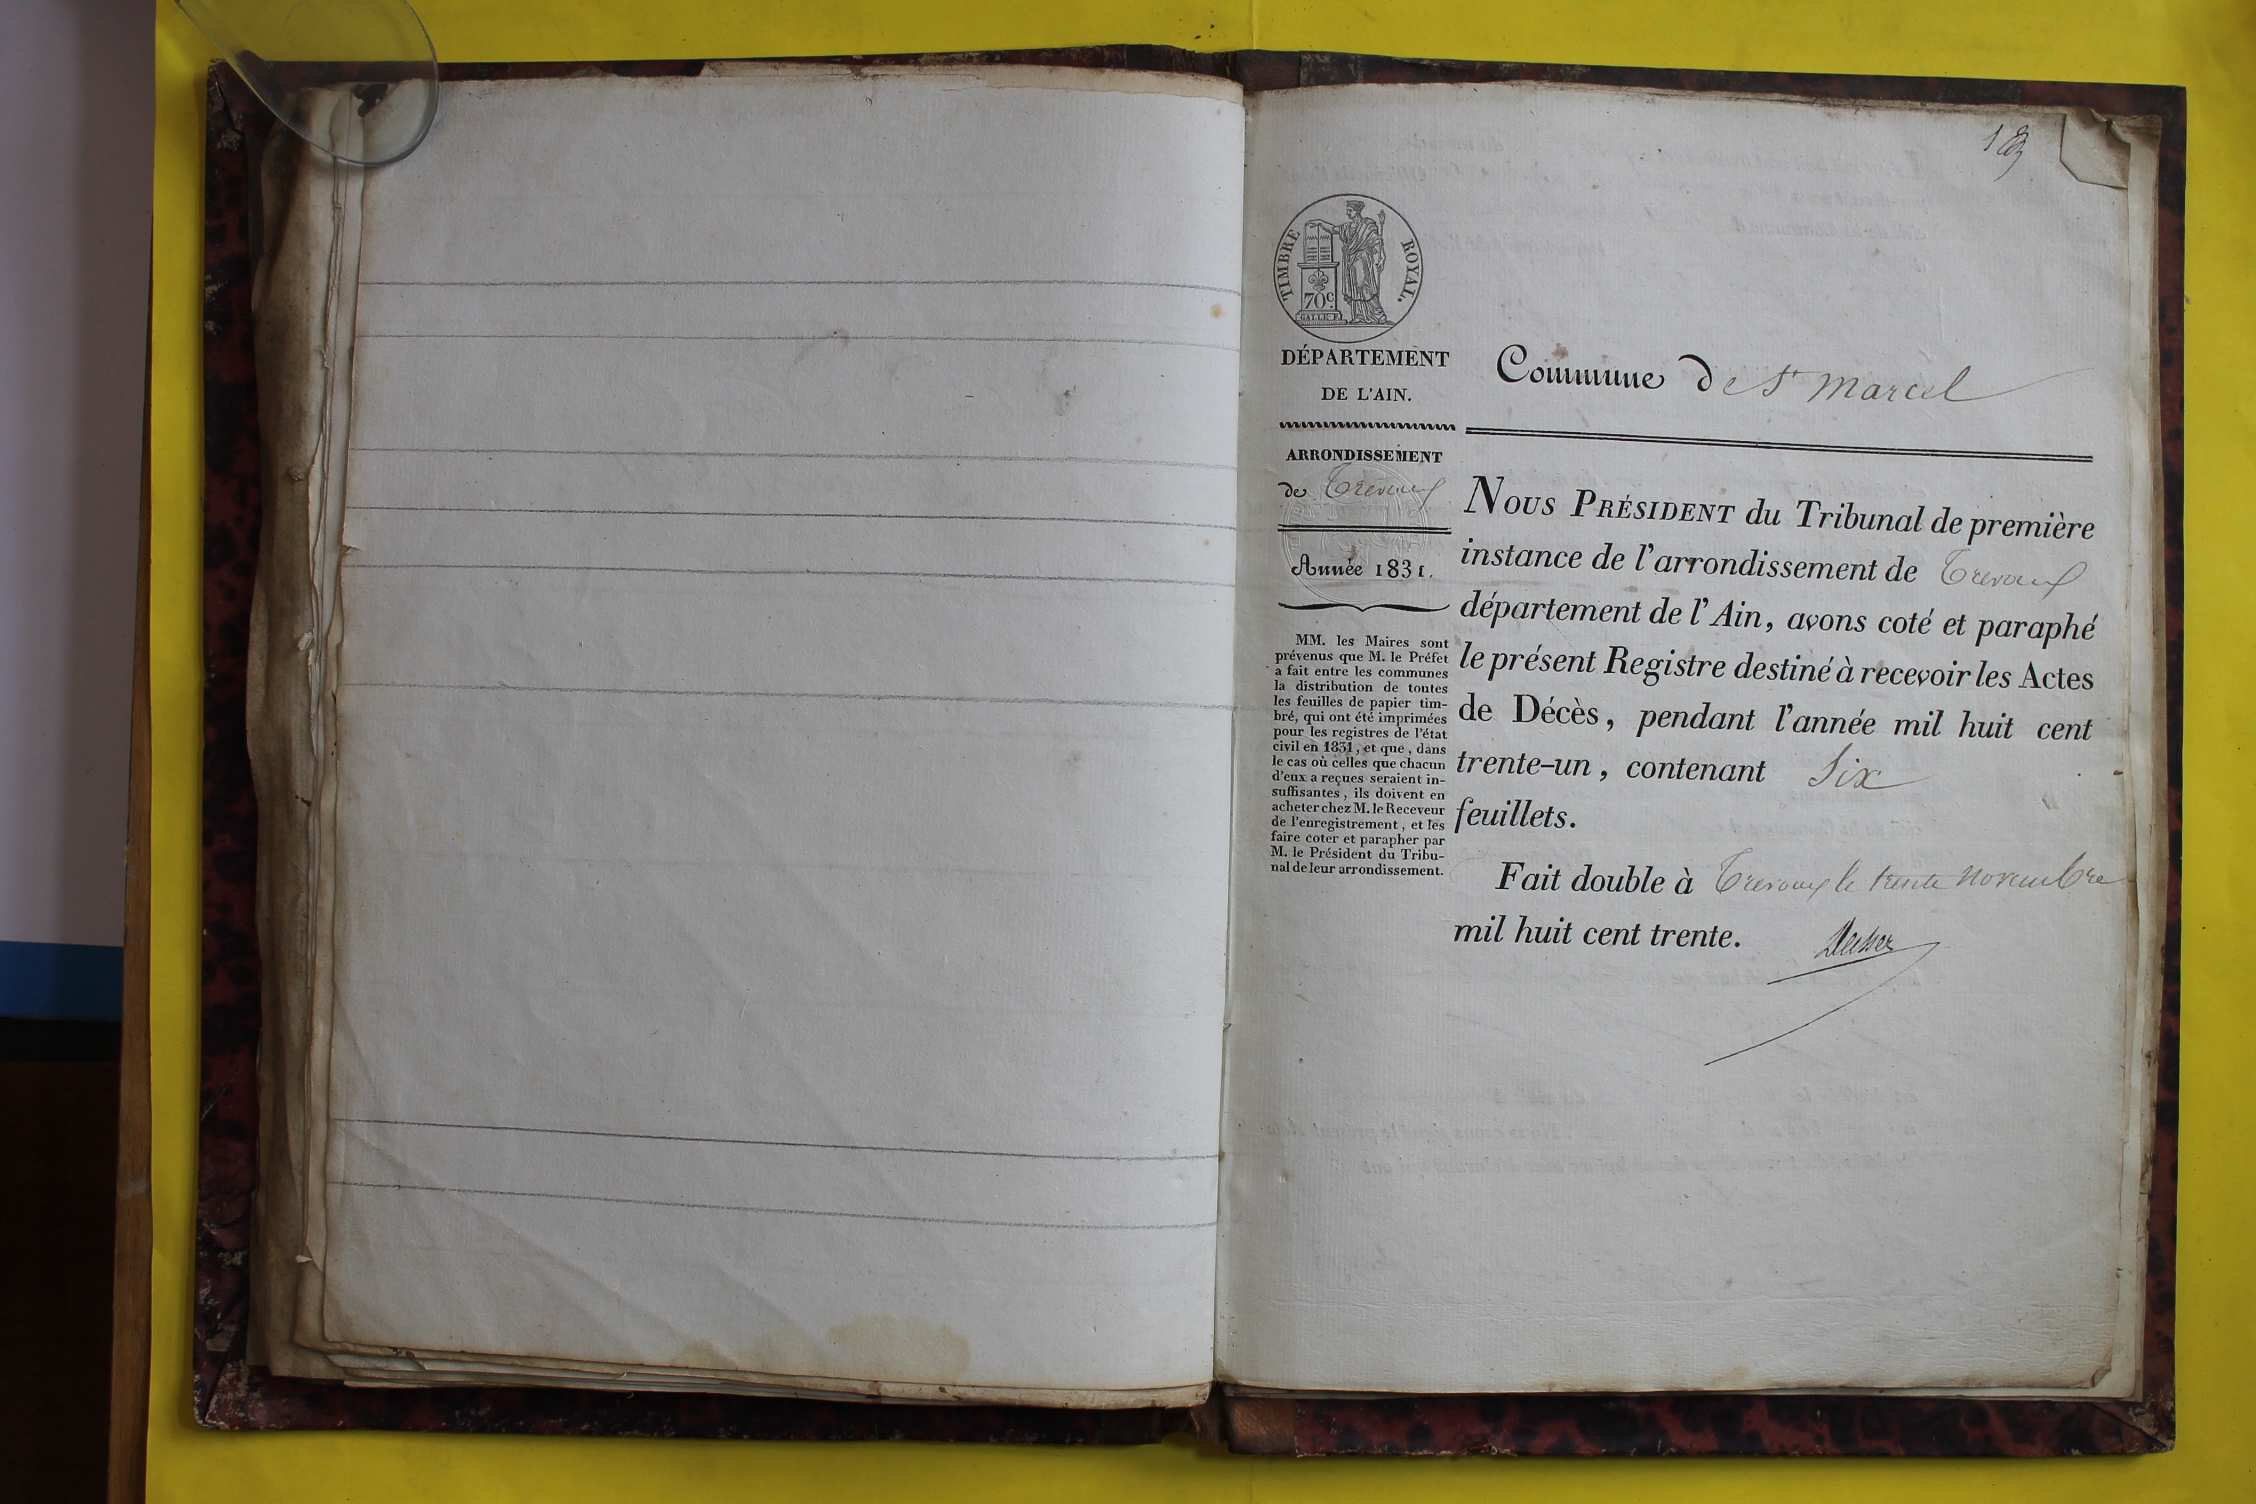 1
TIMBRE ROYAL.
70c.
GALLE F.
DÉPARTEMENT
DE L'AIN.
Commune de St Marcel
ARRONDISSEMENT
de Trevoux
Année 1831.
MM. les Maires sont
prévenus que M. le Préfet
a fait entre les communes
la distribution de toutes
les feuilles de papier tim-
bré, qui ont été imprimées
pour les registres de l'état
civil en 1831, et que, dans
le cas où celles que chacun
d'eux a reçues seraient in-
suffisantes, ils doivent en
acheter chez M. le Receveur
de l'enregistrement, et les
faire coter et parapher par
M. le Président du Tribu-
nal de leur arrondissement.
NOUS PRÉSIDENT du Tribunal de première
instance de l'arrondissement de Trevoux
département de l'Ain, avons coté et paraphé
le présent Registre destiné à recevoir les Actes
de Décès, pendant l'année mil huit cent
trente-un, contenant Six
feuillets.
Fait double à Trevoux le trente novembre
mil huit cent trente.